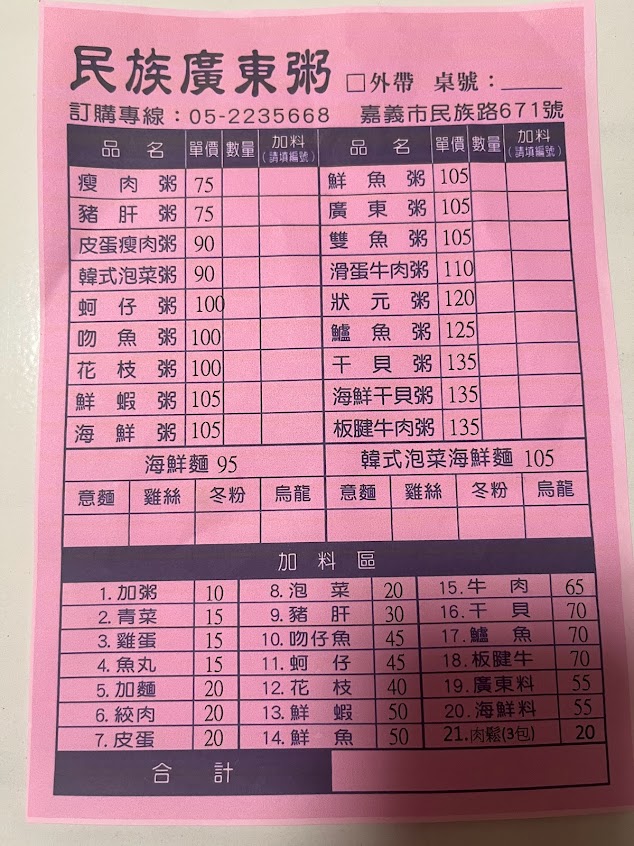 民族廣東粥 □外帶 桌號：
訂購專線：05-2235668 嘉義市民族路671號
品名 單價 數量 加料（請填編號） 品名 單價 數量 加料（請填編號）
瘦肉粥 75 鮮魚粥 105
豬肝粥 75 廣東粥 105
皮蛋瘦肉粥 90 雙魚粥 105
韓式泡菜粥 90 滑蛋牛肉粥 110
蚵仔粥 100 狀元粥 120
吻魚粥 100 鱸魚粥 125
花枝粥 100 干貝粥 135
鮮蝦粥 105 海鮮干貝粥 135
海鮮粥 105 板腱牛肉粥 135
海鮮麵 95 韓式泡菜海鮮麵 105
意麵 雞絲 冬粉 烏龍 意麵 雞絲 冬粉 烏龍
加料區
1.加粥 10 8.泡菜 20 15.牛肉 65
2.青菜 15 9.豬肝 30 16.干貝 70
3.雞蛋 15 10.吻仔魚 45 17.鱸魚 70
4.魚丸 15 11.蚵仔 45 18.板腱牛 70
5.加麵 20 12.花枝 40 19.廣東料 55
6.絞肉 20 13.鮮蝦 50 20.海鮮料 55
7.皮蛋 20 14.鮮魚 50 21.肉鬆(3包) 20
合計